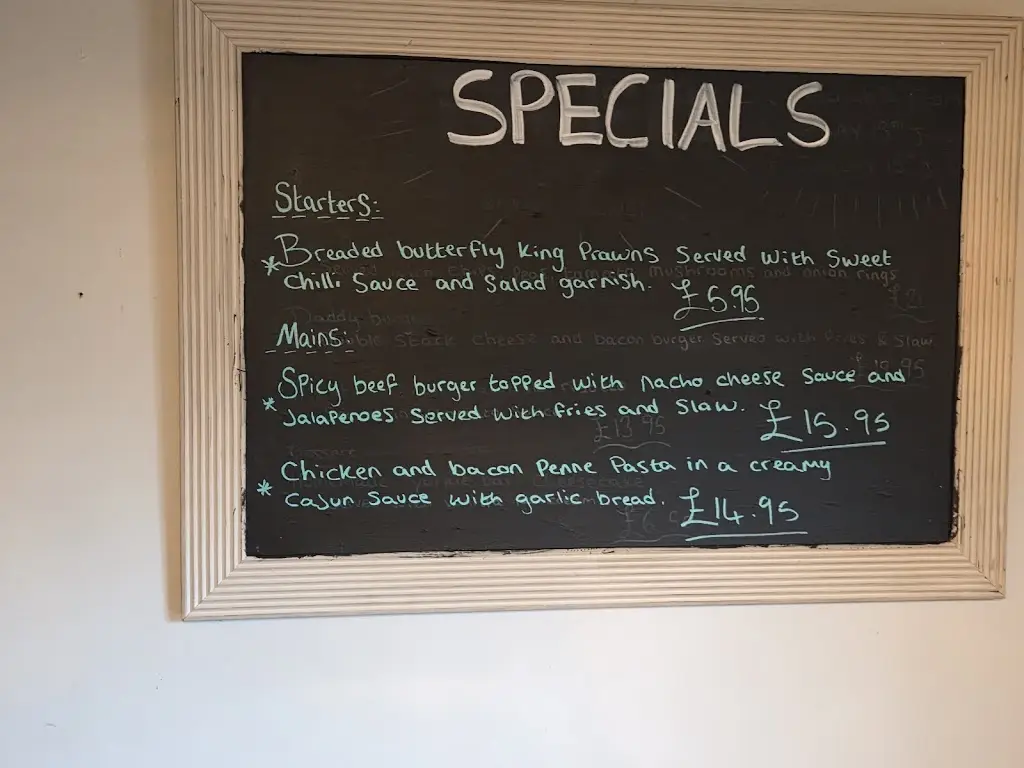 SPECIALS
Starters:
* Breaded butterfly King Prawns Served with Sweet
Chilli Sauce and Salad garnish. £5.95
Mains:
* Spicy beef burger topped with nacho cheese Sauce and
Jalapenoes Served with fries and Slaw. £15.95
* Chicken and bacon Penne Pasta in a creamy
Cajun Sauce with garlic bread. £14.95